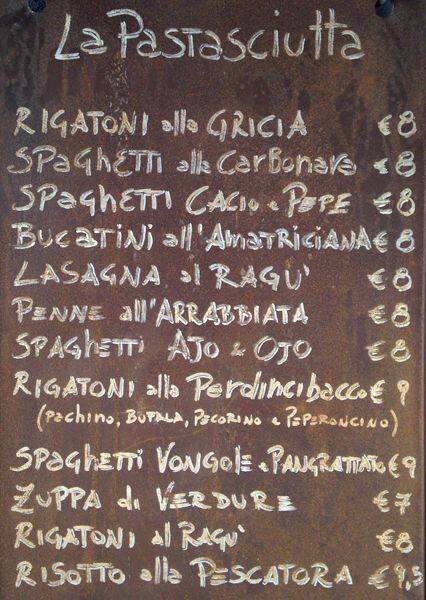 La Pastasciutta
RIGATONI alla GRICIA €8
SPaGHETTI alla CarBonara €8
SPaGHETTI CACIO e PEPE €8
BUCATINI all'AMATRICIANA €8
LASAGNA al RAGU' €8
PENNE all'ARRABBIATA €8
SPAGHETTI AJO & OJO €8
RIGATONI alla Perdincibacco € 9
(PACHINO, BUFALA, PECORINO e PEPERONCINO)
SPaGHETTI VONGOLE e PANGRATTATO €9
ZUPPA di VERDURE €7
RIGATONI al RAGU' €8
RISOTTO alla PESCATORA €9,5